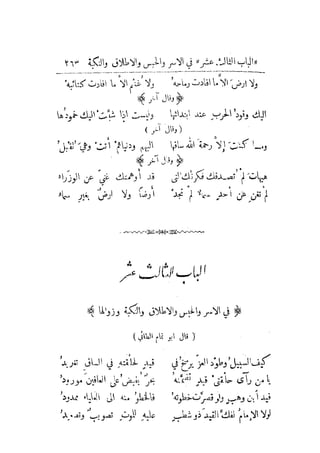 «الباب الثالث عشر» في الاسر والحبس والاطلاق والنكبة ٢٦٣
ولا ارض الا ما افادت رماحه ولا غنم الا ما افادت كتائبه
﴿ وقال آخر ﴾
اليك وقود الحرب عند ابتدائها وليست اذا شبت اليك خمودها
( وقال آخر )
وما كنت إلا رحمة الله ساقها اليهم ودنياهم أنت وهي تقبل
﴿ وقال آخر ﴾
هيهات لم تصدقك فكرتك التي قد أوهمتك غنى عن الوزراء
لم تغن عن أحد سماء لم تجد أرضا ولا ارض بغير سماء
الباب الثالث عشر
﴿ في الاسر والحبس والاطلاق والنكبة وزوالها ﴾
( قال ابو تمام الطائي )
كيف السبيل وطود العز يرسخ في قيد لحلقته في الساق تغريد
يا من رأى حلقتي قيد بحر يفيض على العافين مورود
قيد أبن وهب ولو قصرت خطوته فالخطو منه الى العلياء ممدود
لولا الإمام لفك القيد ذو شطب عليه للموت تصويب وتصعيد